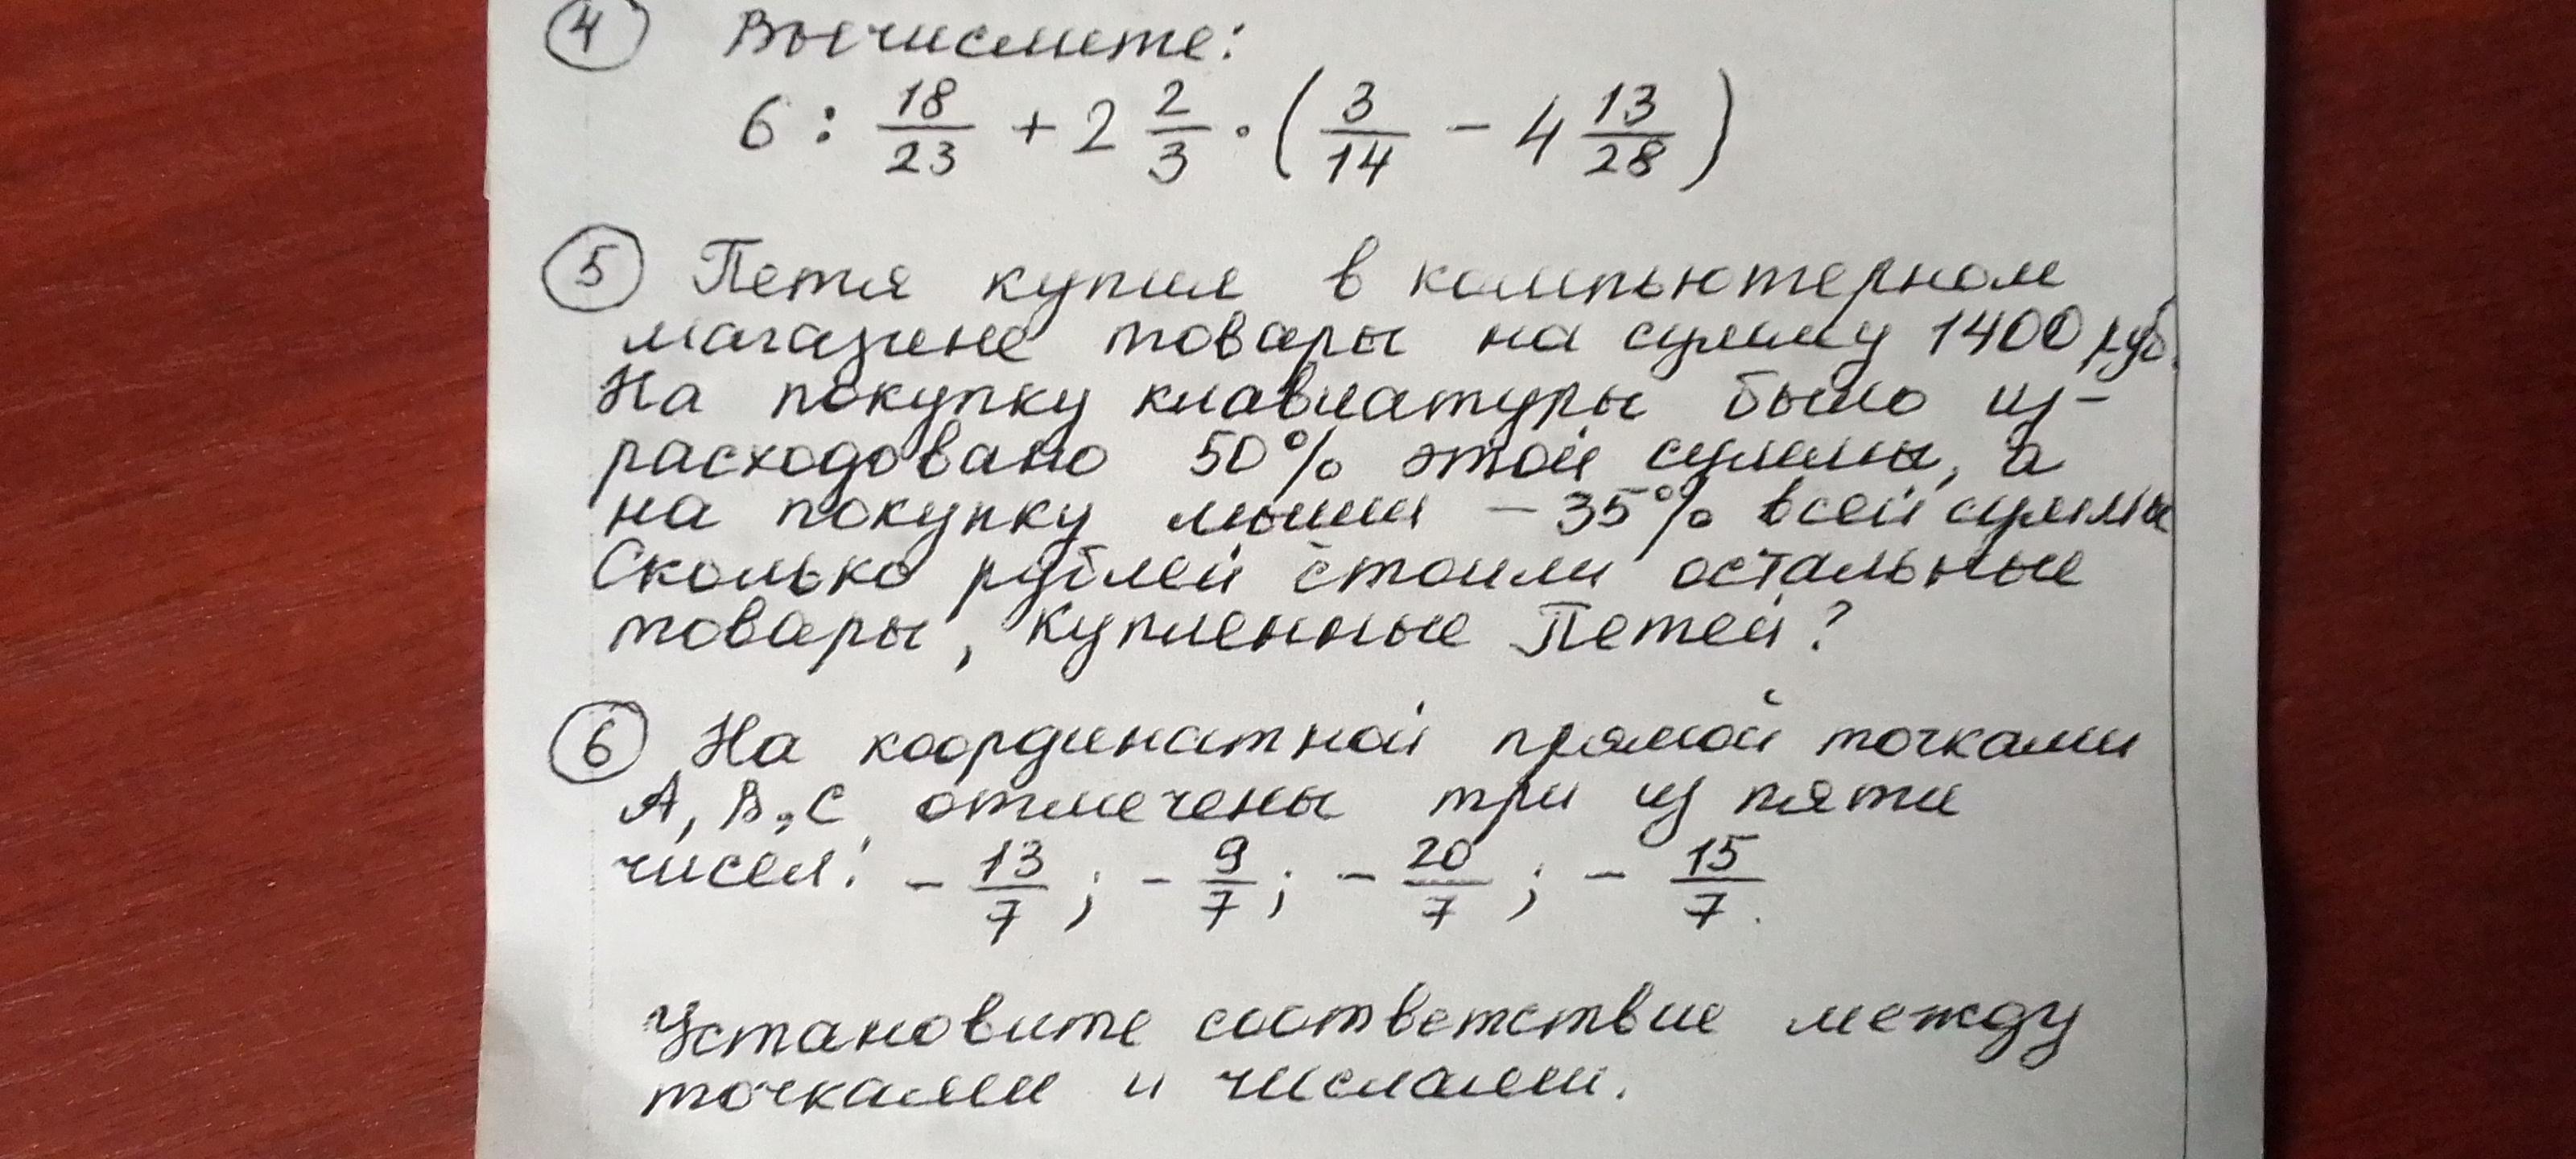 4 Вычислите:
6 : 18/23 + 2 2/3 · (3/14 - 4 13/28)
5 Петя купил в компьютерном
магазине товары на сумму 1400 руб.
На покупку клавиатуры было из-
расходовано 50% этой суммы, а
на покупку мыши - 35% всей суммы
Сколько рублей стоили остальные
товары, купленные Петей?
6 На координатной прямой точками
А, В, С отмечены три из пяти
чисел: - 13/7 ; - 9/7 ; - 20/7 ; - 15/7.
Установите соответствие между
точками и числами.